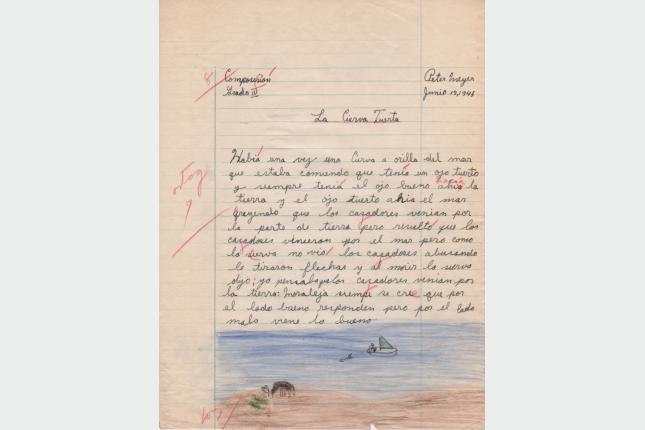 8 Composición Peter Meyer
Grado IV Junio 19, 1948
La Cierva Tuerta
Había una vez una Cierva a orilla del mar
que estaba comiendo que tenía un ojo tuerto
y siempre teniá el ojo bueno ahia la hacia
tierra y el ojo tuerto ahia el mar
Creyendo que los casadores venian por
la parte de tierra pero resulto que los
casadores vinieron por el mar pero como
la sierva no vio los casadores
le tiraron flechas y al morir la sierva
dijo; yo pensaba los casadores venian por
la tierra. Moraleja siempre se cree que por
el lado bueno responden pero por el lado
malo viene lo bueno